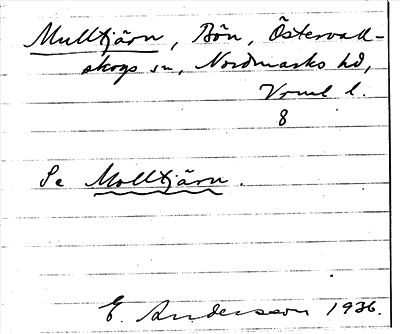 Mulltjärn, Bön, Östervall-
skogs sn, Nordmarks hd,
Vrml l.
8
Se Molltjärn.
E. Andersson 1936.